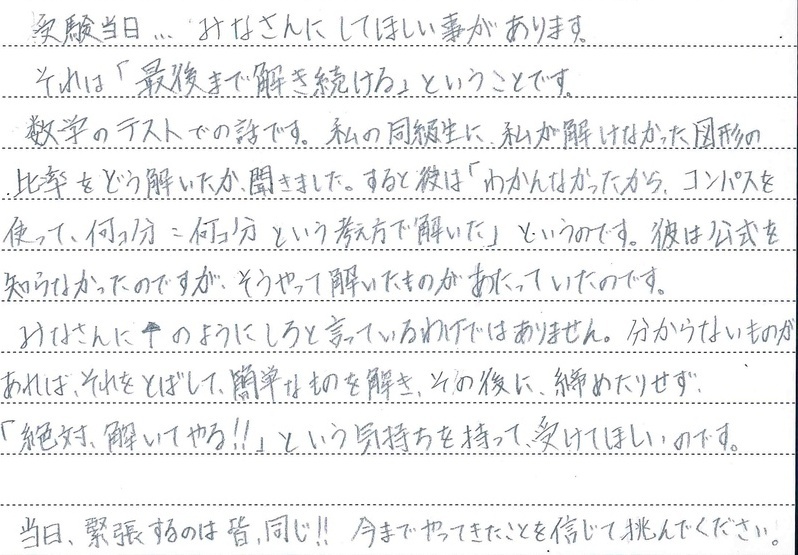 受験当日… みなさんにしてほしい事があります。
それは「最後まで解き続ける」ということです。
数学のテストでの話です。私の同級生に、私が解けなかった図形の
比率をどう解いたか、聞きました。すると彼は「わかんなかったから、コンパスを
使って、何コ分:何コ分という考え方で解いた」というのです。彼は公式を
知らなかったのですが、そうやって解いたものがあたっていたのです。
みなさんに↑のようにしろと言っているわけではありません。分からないものが
あれば、それをとばして、簡単なものを解き、その後に、締めたりせず、
「絶対、解いてやる!!」という気持ちを持って、受けてほしいのです。
当日、緊張するのは皆、同じ!! 今までやってきたことを信じて挑んでください。